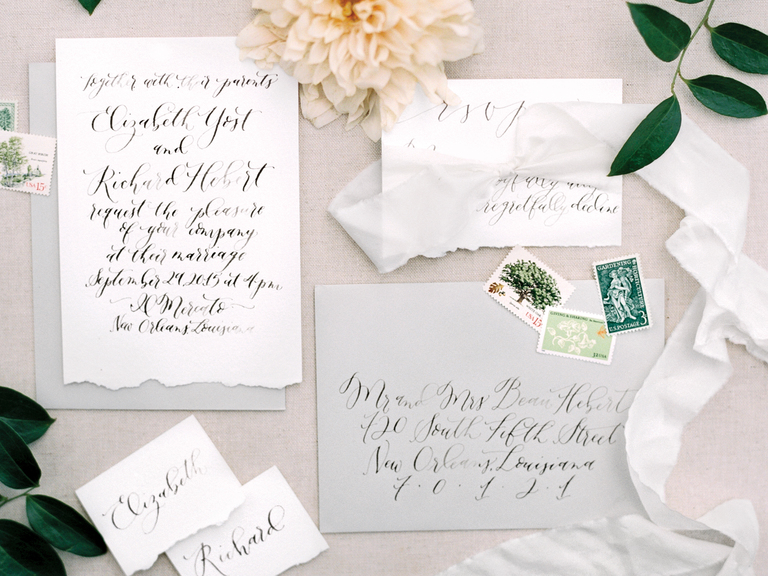 Together with their parents
Elizabeth Yost
and
Richard Hebert
request the pleasure
of your company
at their marriage
September 29, 2015 at 4 pm
Il Mercato
New Orleans, Louisiana
rsvp
regretfully decline
USA 15c
USA 15c
GIVING & SHARING
32 USA
GARDENING
HORTICULTURE
U.S. POSTAGE 3
Mr and Mrs Beau Hebert
120 South Fifth Street
New Orleans, Louisiana
7 · 0 · 1 · 2 · 1
Elizabeth
Richard